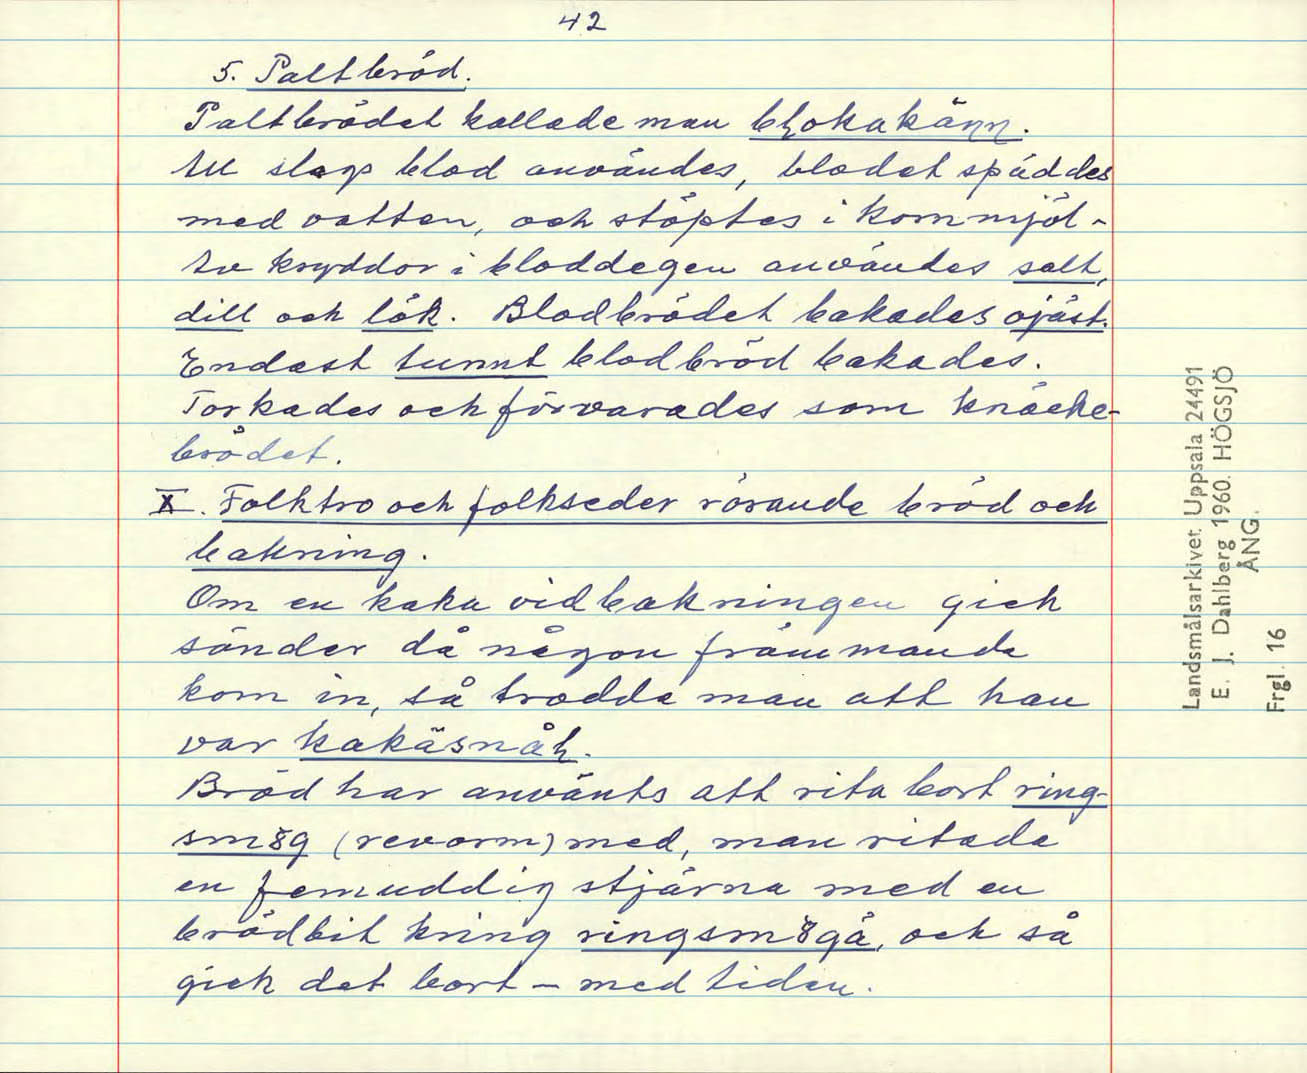 42
5. Paltbröd.
Paltbrödet kallade man
All slags blod användes, blodet späddes
med vatten, och stöptes i kornmjöl -
Av kryddor i bloddegen användes salt,
dill och lök. Blodbrödet bakades ojäst.
Endast tunnt blodbröd bakades.
Torkades och förvarades som knäcke-
brödet.
X. Folktro och folkseder rörande bröd och
bakning.
Om en kaka vid bakningen gick
sönder då någon främmande
kom in, så trodde man att han
var
Bröd har använts att rita bort ring-
sm8g (revorm) med, man ritade
en femuddig stjärna med en
brödbit kring ringsm8gä, och så
gick det bort - med tiden.
Landsmålsarkivet. Uppsala 24491
E. J. Dahlberg 1960. HÖGSJÖ
ÅNG.
Frgl. 16